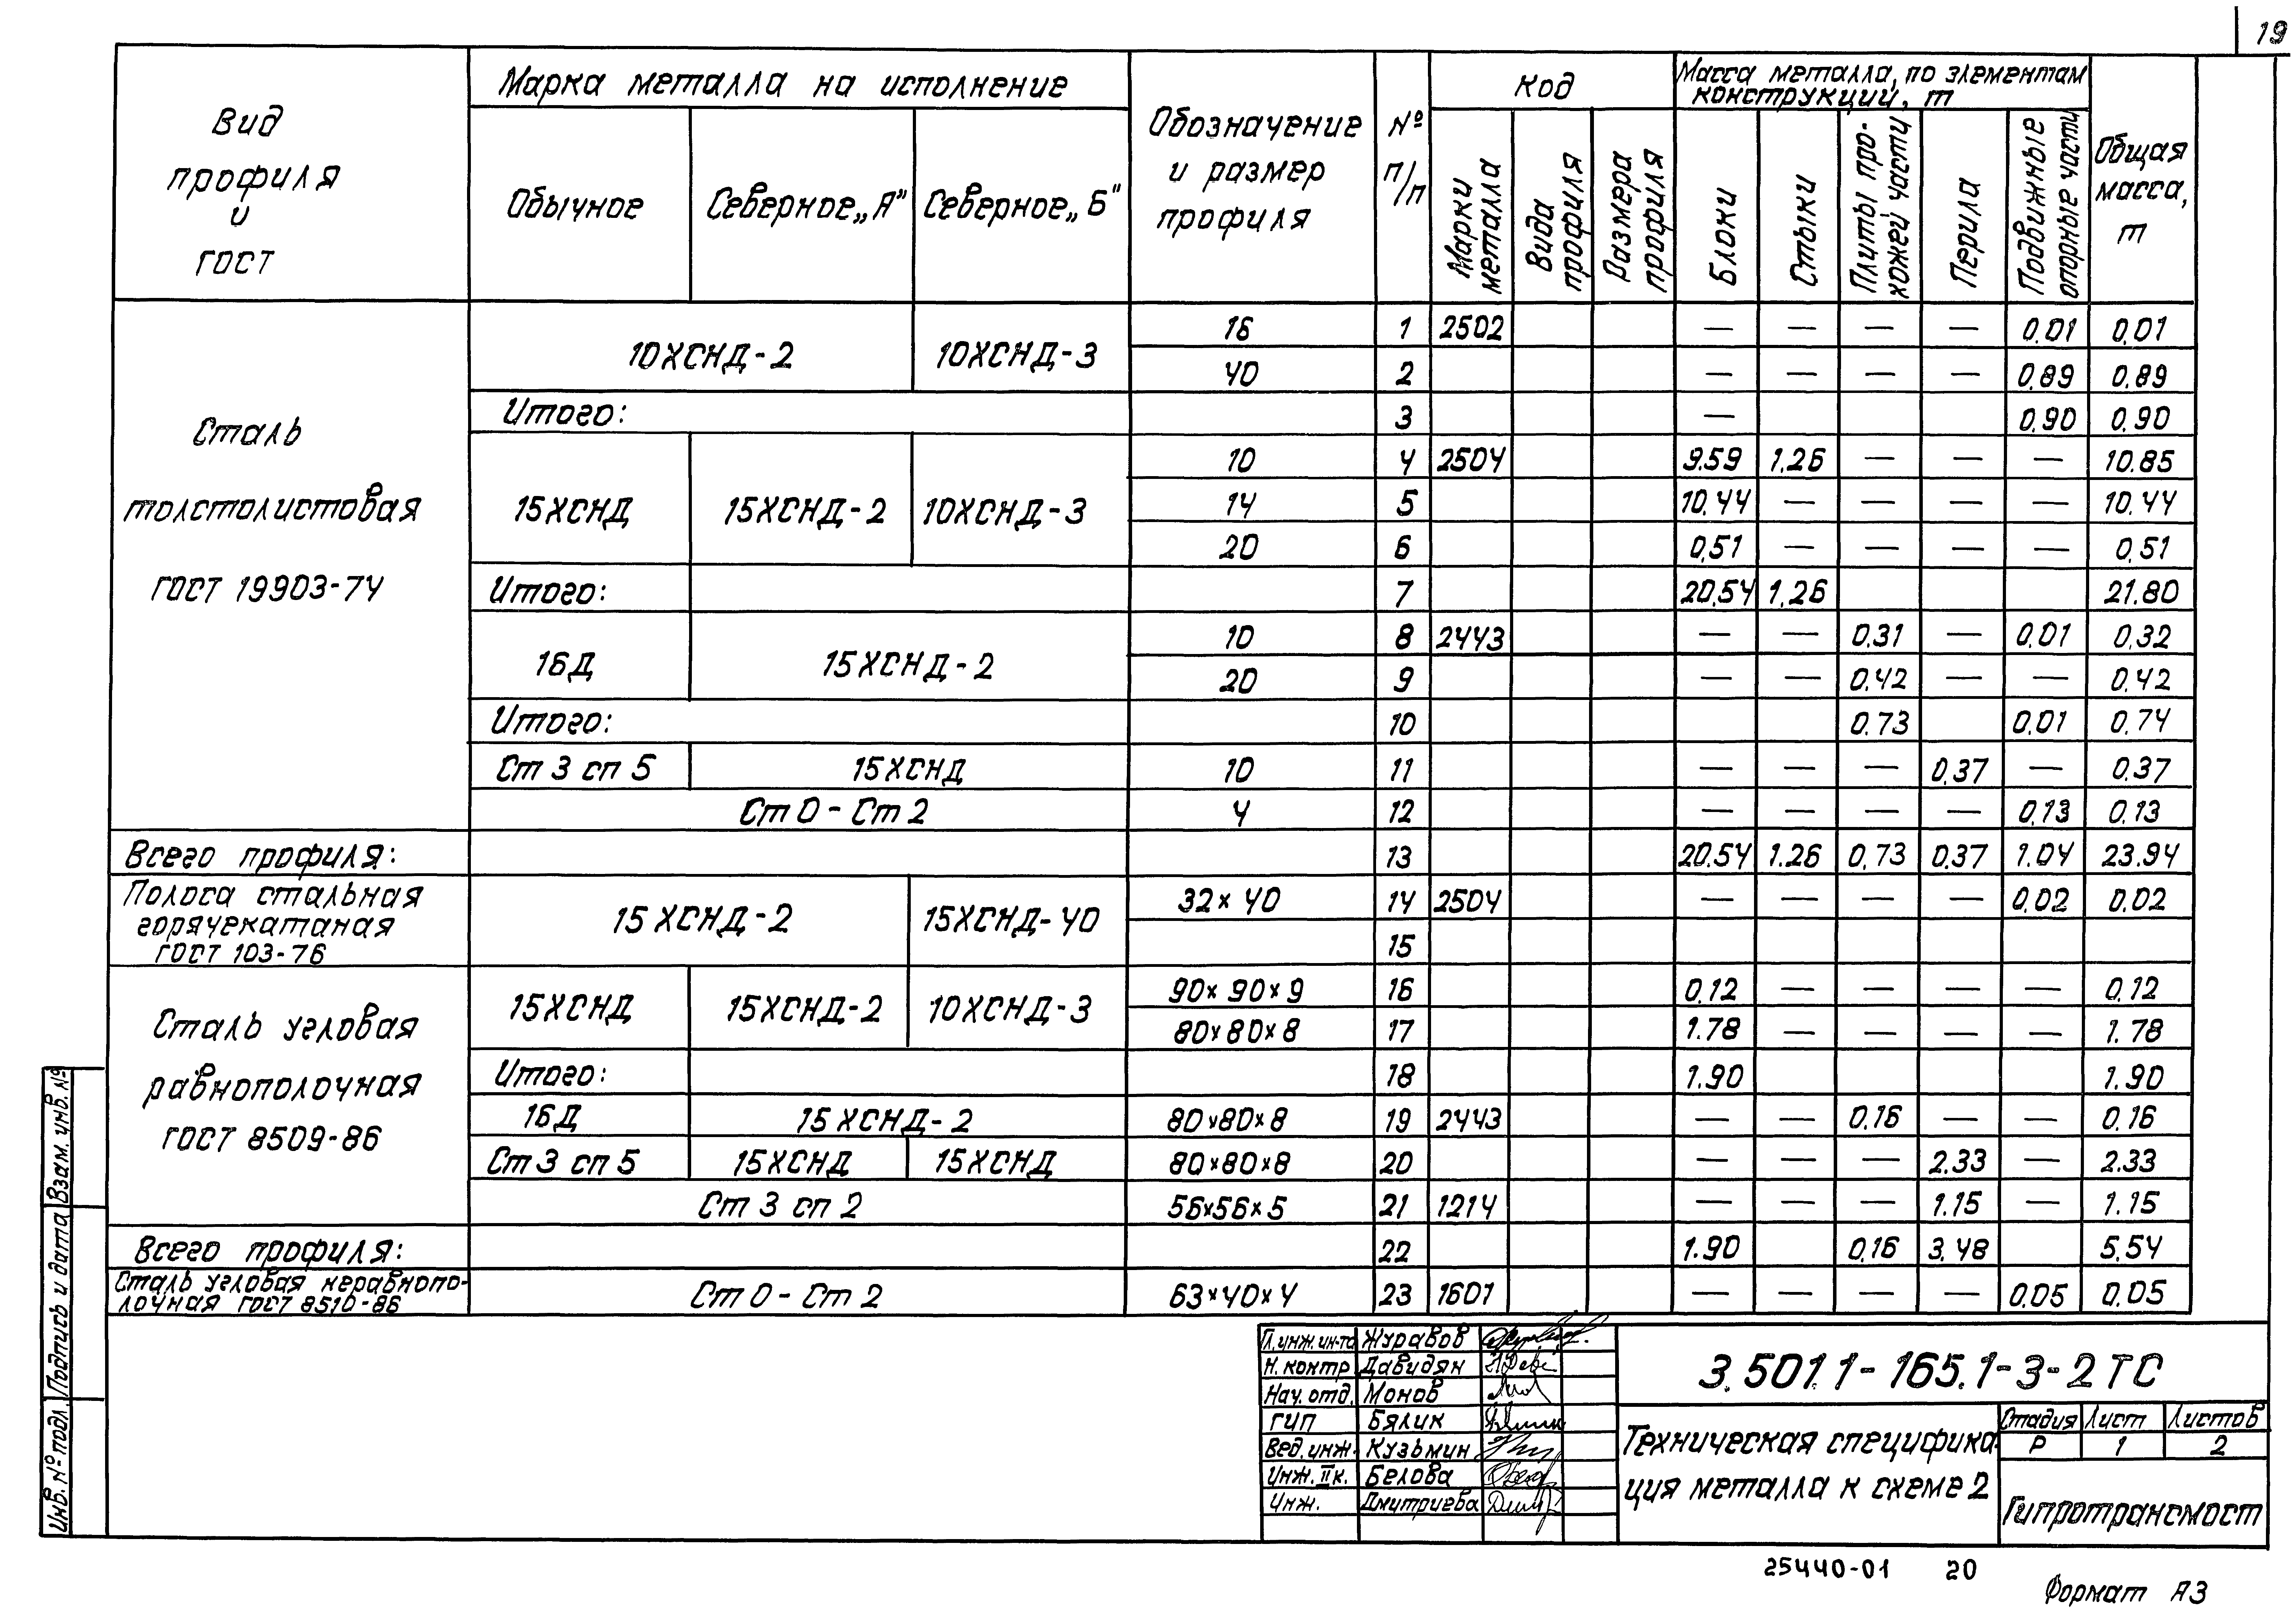 19
Вид профиля и ГОСТ | Марка металла на исполнение | Обозначение и размер профиля | № п/п | Код | Масса металла, по элементам конструкций, т | Общая масса, т
Обычное | Северное „А" | Северное „Б" | Марки металла | Вида профиля | Размера профиля | Блоки | Стыки | Плиты проезжей части | Перила | Подвижные опорные части
Сталь
толстолистовая
ГОСТ 19903-74
10ХСНД-2 | 10ХСНД-3
16 | 1 | 2502 | — | — | — | — | 0.01 | 0.01
40 | 2 | — | — | — | — | 0.89 | 0.89
Итого: | 3 | — | 0.90 | 0.90
15ХСНД | 15ХСНД-2 | 10ХСНД-3
10 | 4 | 2504 | 9.59 | 1.26 | — | — | — | 10.85
14 | 5 | 10.44 | — | — | — | — | 10.44
20 | 6 | 0.51 | — | — | — | — | 0.51
Итого: | 7 | 20.54 | 1.26 | 21.80
16Д | 15ХСНД-2
10 | 8 | 2443 | — | — | 0.31 | — | 0.01 | 0.32
20 | 9 | — | — | 0.42 | — | — | 0.42
Итого: | 10 | 0.73 | 0.01 | 0.74
Ст 3 сп 5 | 15ХСНД | 10 | 11 | — | — | — | 0.37 | — | 0.37
Ст 0 - Ст 2 | 4 | 12 | — | — | — | — | 0.13 | 0.13
Всего профиля: | 13 | 20.54 | 1.26 | 0.73 | 0.37 | 1.04 | 23.94
Полоса стальная
горячекатаная
ГОСТ 103-76
15ХСНД-2 | 15ХСНД-40
32×40 | 14 | 2504 | — | — | — | — | 0.02 | 0.02
15
Сталь угловая
равнополочная
ГОСТ 8509-86
15ХСНД | 15ХСНД-2 | 10ХСНД-3
90×90×9 | 16 | 0.12 | — | — | — | — | 0.12
80×80×8 | 17 | 1.78 | — | — | — | — | 1.78
Итого: | 18 | 1.90 | 1.90
16Д | 15ХСНД-2 | 80×80×8 | 19 | 2443 | — | — | 0.16 | — | — | 0.16
Ст 3 сп 5 | 15ХСНД | 15ХСНД | 80×80×8 | 20 | — | — | — | 2.33 | — | 2.33
Ст 3 сп 2 | 56×56×5 | 21 | 1214 | — | — | — | 1.15 | — | 1.15
Всего профиля: | 22 | 1.90 | 0.16 | 3.48 | 5.54
Сталь угловая неравнопо-
лочная ГОСТ 8510-86
Ст 0 - Ст 2 | 63×40×4 | 23 | 1601 | — | — | — | — | 0.05 | 0.05
Инв. № подл. | Подпись и дата | Взам. инв. №
Гл. инж. ин-та Журавов
Н. контр. Давидян
Нач. отд. Монов
ГИП Бялик
Вед. инж. Кузьмин
Инж. II к. Белова
Инж. Дмитриева
3.501.1-165.1-3-2ТС
Техническая специфика-
ция металла к схеме 2
Стадия | Лист | Листов
Р | 1 | 2
Гипротрансмост
25440-01 20
Формат А3